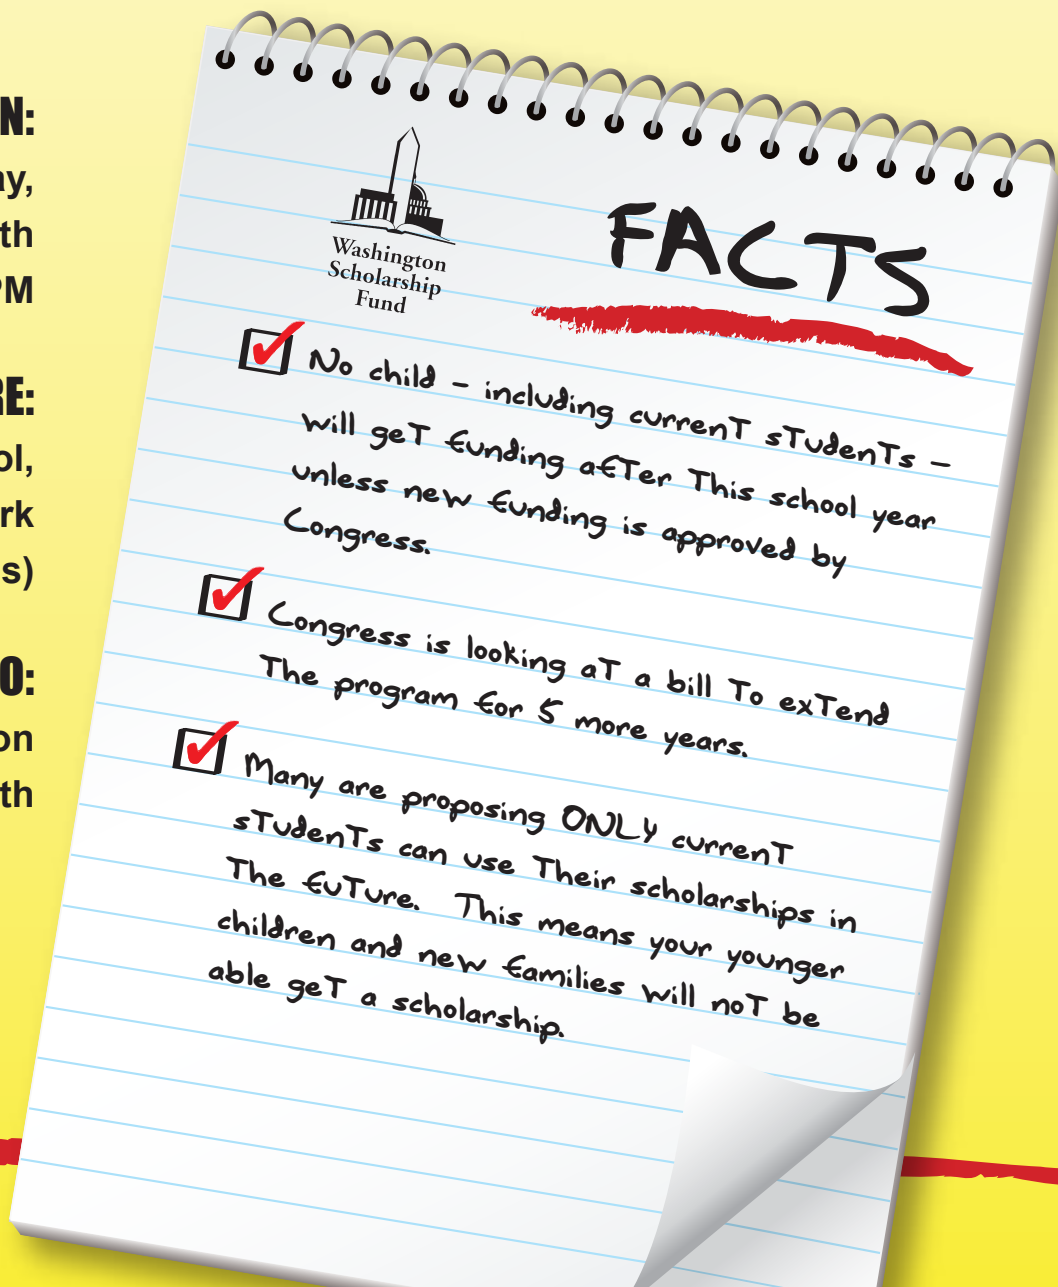 N:
ay,
th
PM
RE:
ol,
rk
s)
O:
on
th
Washington
Scholarship
Fund
FACTS
No child – including current students –
will get funding after This school year
unless new funding is approved by
Congress.
Congress is looking at a bill To extend
The program for 5 more years.
Many are proposing ONLY current
students can use Their scholarships in
The future. This means your younger
children and new families will not be
able get a scholarship.